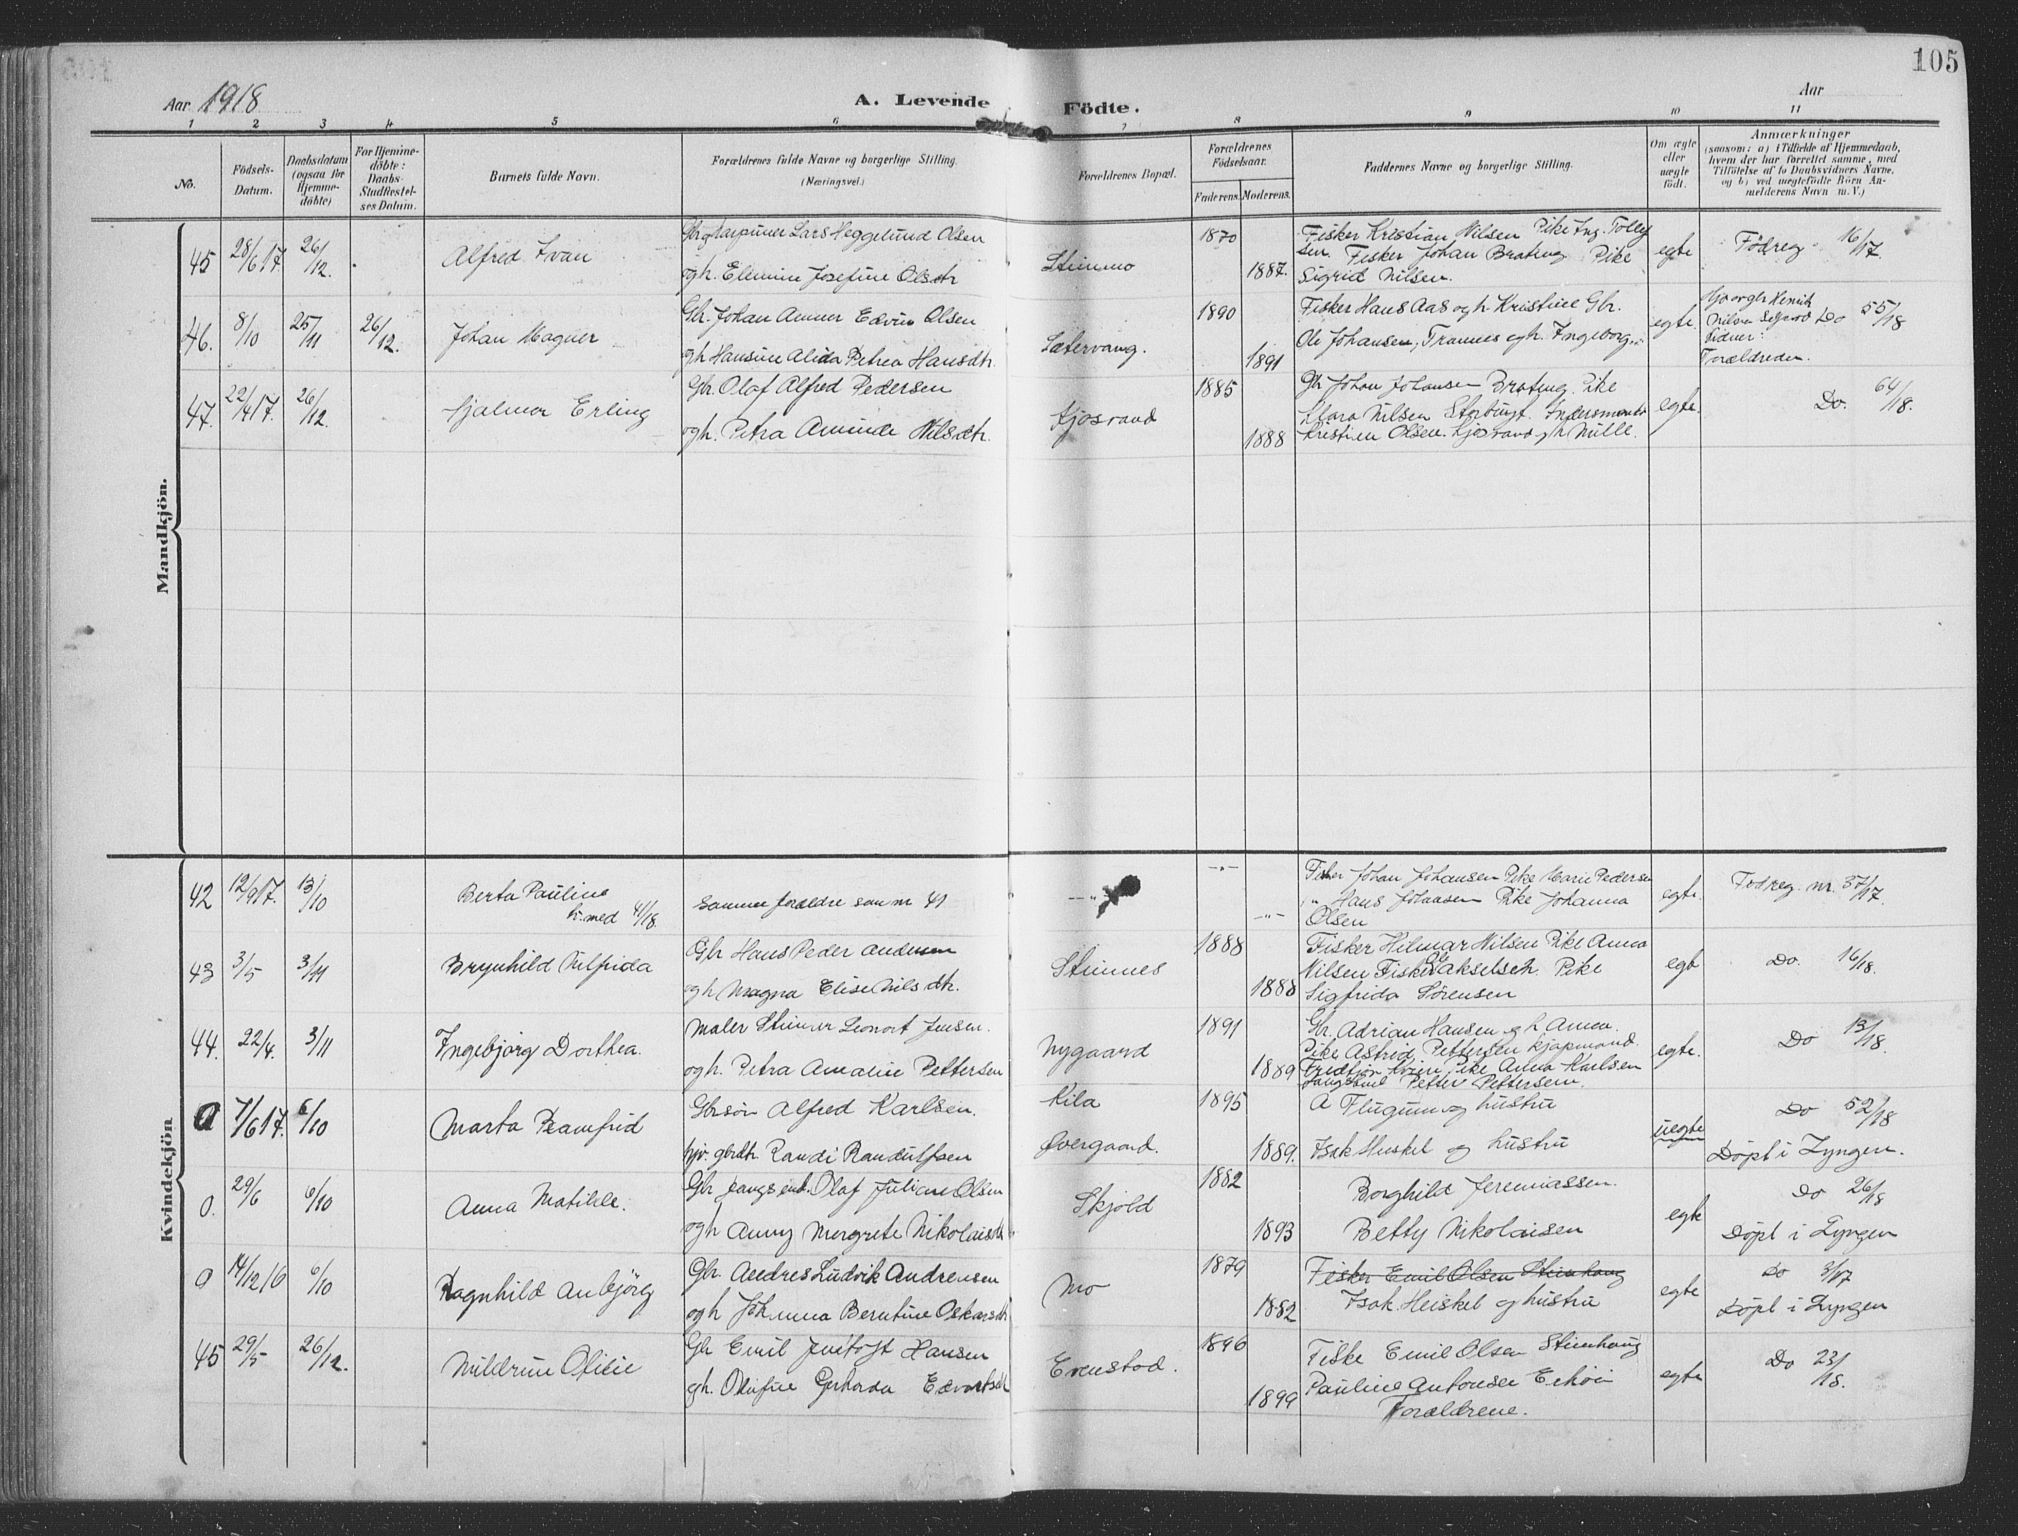 105
Aar 1918
A. Levende Födte.
Aar
1 2 3 4 5 6 7 8 9 10 11
No.
Födsels-Datum.
Daabsdatum (ogsaa for Hjemme-döbte)
For Hjemme-döbte: Daabs-Stadfæstel-ses Datum.
Barnets fulde Navn.
Forældrenes fulde Navne og borgerlige Stilling.
(Næringsvei.)
Forældrenes Bopæl.
Forældrenes Födselsaar.
Faderens. Moderens.
Faddernes Navne og borgerlige Stilling.
Om ægte eller uægte födt.
Anmærkninger
(saasom: a) i Tilfælde af Hjemmedaab,
hvem der har forrettet samme, med
Tilföielse af to Daabsvidners Navne,
og b) ved uægtefödte Börn An-
melderens Navn m. V.)
Mandkjön.
45 28/6 17. 26/12. Alfred Ivan
Lars Heggelund Olsen
og h. Elumine Josefine Olsdtr
1870
1887.
Fisker Kristian Nilsen Pike Ing. Tollef
sen. Fisker Johan Brateng Pike
Sigrid Nilsen.
egte
Fødreg 16/17.
46. 8/10 25/11 26/12. Johan Magner
Gbr. Johan Amur Edvin Olsen
og h. Hansine Alida Petrea Hansdtr.
Sætervang.
1890
1891
Fisker Hans Aas og h. Kristine Gbr.
Ole Johansen, Tramnes og h. Ingeborg.
egte.
Nilsen
Forældreden.
Do 55/18
47. 22/4 17. 26/12. Hjalmar Erling
Gbr. Olaf Alfred Pedersen
og h. Petra Aminde Nilsdtr.
Kjosvand
1885
1888
Gbr Johan Johansen Brateng. Pike
Klara Nilsen
Kristian Olsen. Kjosvand og h. Mille.
egte.
Do. 64/18.
Kvindekjön
42 12/9 17. 13/10 Berta Pauline
tv. med 41/18.
Samme forældre som nr 41
-"-
-"-
-"-
Fisker Johan Johansen Pike Marie Pedersen
" Hans Johansen Pike Johanna
Olsen
egte.
Fødreg. nr. 37/17.
43 3/5 3/11 Brynhild Sulfrida
Gbr Hans Peder Andersen
og h Magna Elise Nilsdtr.
Steinnes
1888
1888
Fisker Hilmar Nilsen Pike Anna
Nilsen Fisker Ole Akselsen. Pike
Sigfrida Sörensen
egte
Do. 16/18.
44. 22/4. 3/11 Ingebjørg Dorthea.
Maler Steinar Leonart Jensen.
og h. Petra Amalie Pettersen
Nygaard
1891
1889
Gbr. Adrian Hansen og h Anna.
Pike Astrid Pettersen Kjøpmand.
Pike Anna Karlsen
Petter Pettersen.
egte.
Do 13/18.
0 7/6 17. 6/10 Marta Ramfrid
Gbr.søn Alfred Karlsen.
Randi Randulfsen
Kila
Øvergaard.
1895
1889.
A Flugum og hustru
Isak Heiskel og hustru
uegte
Do 52/18
Døpt i Lyngen.
0. 29/6 6/10 Anna Matilde.
Gbr Olaf Juliane Olsen
og h Anny Margrete Nikolaisdtr
Skjold
1882
1893
Borghild Jeremiassen.
Betty Nikolaisen
egte
Do 26/18
Døpt i Lyngen
0 14/12 16 6/10 Ragnhild Anbjörg
Gbr. Andreas Ludvik Andreasen
og h Johanna Berntine Oskarsdtr
Mo
1879
1882
Fisker Emil Olsen Steinhaug
Isak Heiskel og hustru
egte
Do 3/17
Døpt i Lyngen
45 29/5 26/12. Mildrun Otilie
Gbr Emil Hansen
og h. Olufine Gerharda Edvartsdtr
Evenstad.
1896
1899
Fisker Emil Olsen Steinhaug
Pauline Antonsen
Forældrene.
egte
Do 23/18.